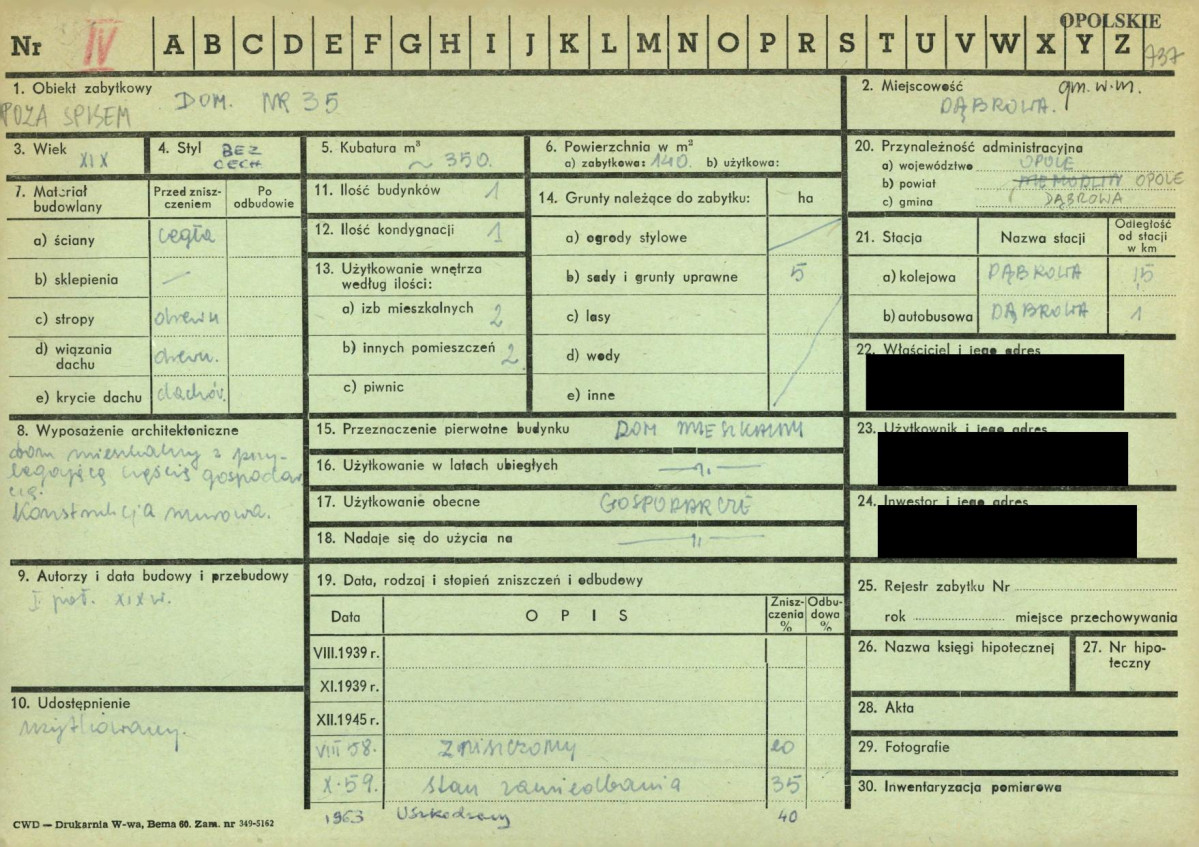 OPOLSKIE
Nr IV A B C D E F G H I J K L M N O P R S T U V W X Y Z 737
1. Obiekt zabytkowy DOM. NR 35
POZA SPISEM
2. Miejscowość gm. w.m.
DĄBROWA.
3. Wiek XIX
4. Styl BEZ CECH
5. Kubatura m³ ~ 350.
6. Powierzchnia w m²
a) zabytkowa: 140. b) użytkowa:
7. Materiał budowlany
Przed zniszczeniem
Po odbudowie
a) ściany cegła
b) sklepienia —
c) stropy drewn
d) wiązania dachu drewn.
e) krycie dachu dachów.
8. Wyposażenie architektoniczne
dom mieszkalny z przy-
legającą częścią gospodar
czą.
Konstrukcja murowa.
9. Autorzy i data budowy i przebudowy
I. poł. XIX w.
10. Udostępnienie
użytkowany.
11. Ilość budynków 1
12. Ilość kondygnacji 1
13. Użytkowanie wnętrza według ilości:
a) izb mieszkalnych 2
b) innych pomieszczeń 2
c) piwnic
14. Grunty należące do zabytku: ha
a) ogrody stylowe
b) sady i grunty uprawne 5
c) lasy
d) wody
e) inne
15. Przeznaczenie pierwotne budynku DOM MIESZKALNY
16. Użytkowanie w latach ubiegłych —"—
17. Użytkowanie obecne GOSPODARCZE
18. Nadaje się do użycia na —"—
19. Data, rodzaj i stopień zniszczeń i odbudowy
Data OPIS Zniszczenia % Odbudowa %
VIII.1939 r.
XI.1939 r.
XII.1945 r.
VIII 58. Zniszczony 20
X.59. Stan zaniedbania 35
1963 Uszkodzony 40
20. Przynależność administracyjna
a) województwo OPOLE
b) powiat NIEMODLIN OPOLE
c) gmina DĄBROWA
21. Stacja Nazwa stacji Odległość od stacji w km
a) kolejowa DĄBROWA 1,5
b) autobusowa DĄBROWA 1
22. Właściciel i jego adres
23. Użytkownik i jego adres
24. Inwestor i jego adres
25. Rejestr zabytku Nr
rok miejsce przechowywania
26. Nazwa księgi hipotecznej
27. Nr hipoteczny
28. Akta
29. Fotografie
30. Inwentaryzacja pomiarowa
CWD — Drukarnia W-wa, Bema 60. Zam. nr 349-5162